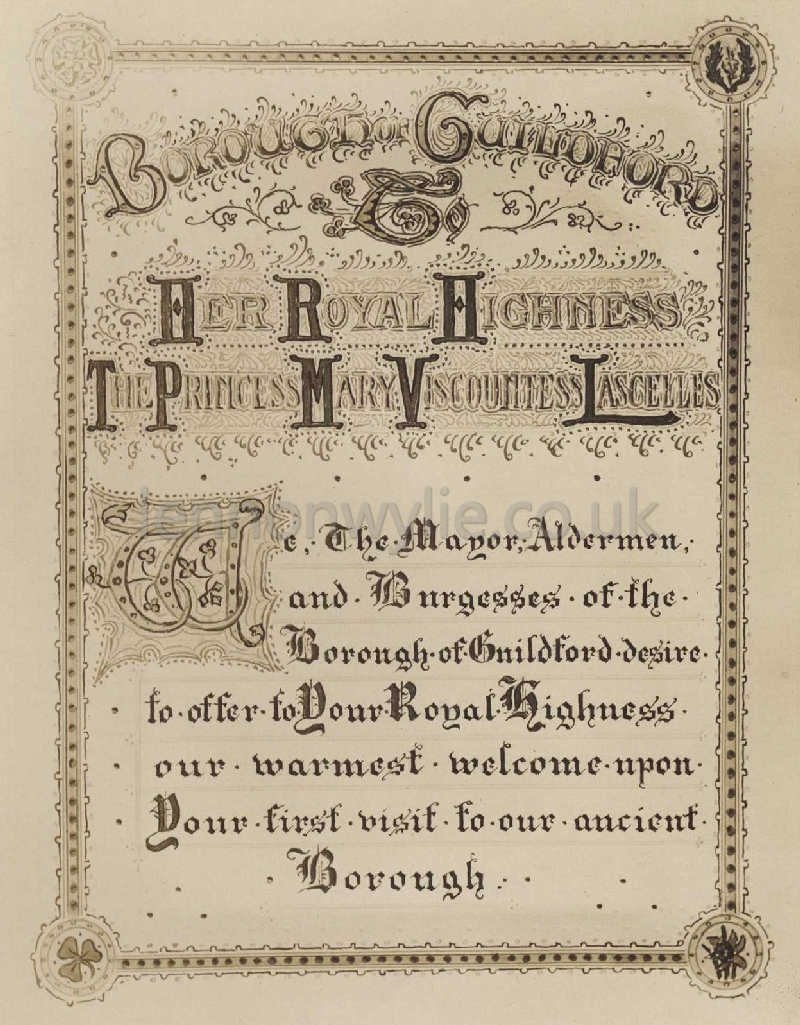 Borough of Guildford
To
Her Royal Highness
The Princess Mary Viscountess Lascelles
lennonwylie.co.uk
We, The Mayor, Aldermen,
and Burgesses of the
Borough of Guildford desire
to offer to Your Royal Highness
our warmest welcome upon
Your first visit to our ancient
Borough.